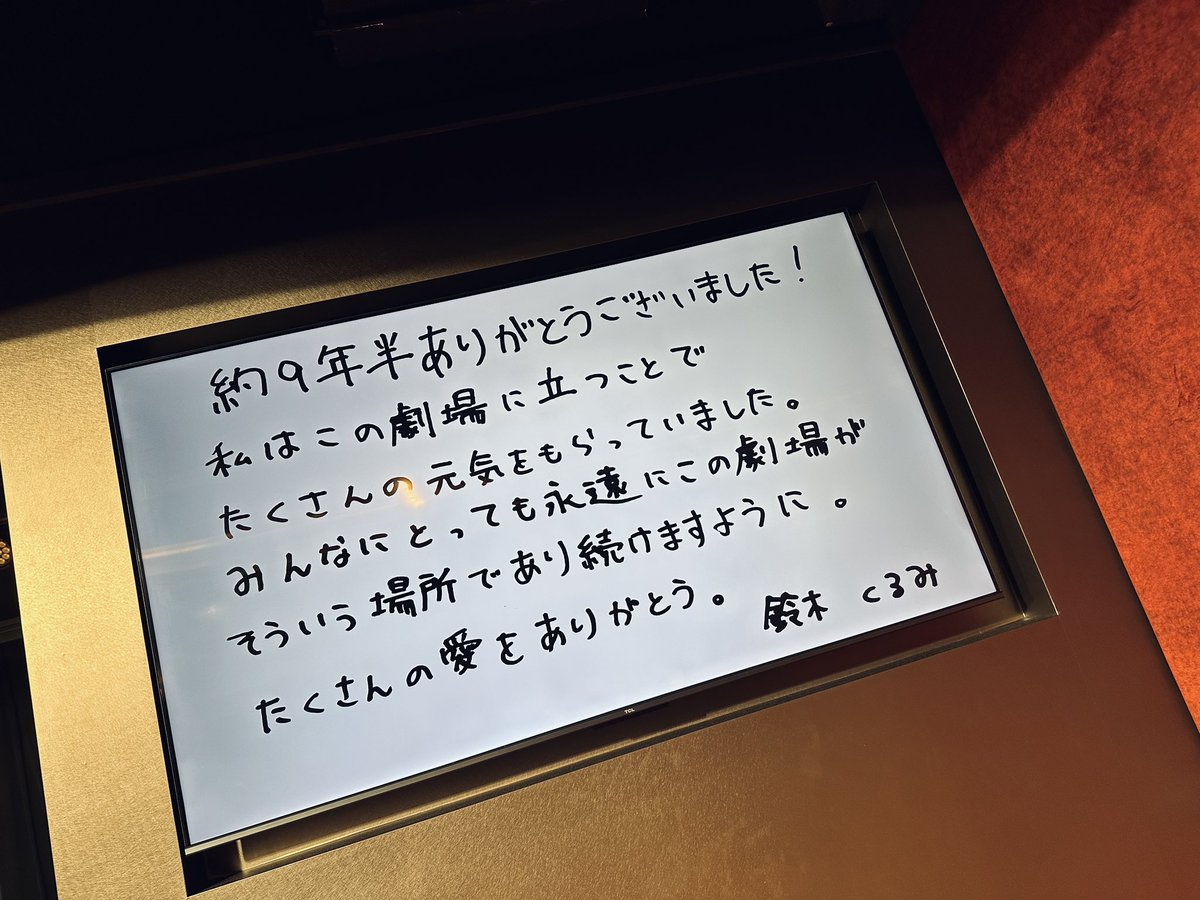 約9年半ありがとうございました!
私はこの劇場に立つことで
たくさんの元気をもらっていました。
みんなにとっても永遠にこの劇場が
そういう場所であり続けますように。
たくさんの愛をありがとう。 鈴木 くるみ
TCL